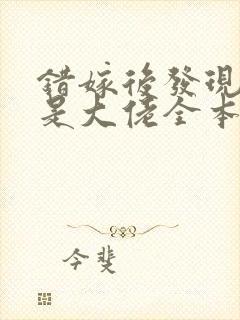 錯嫁後發現
是大佬全本
今斐